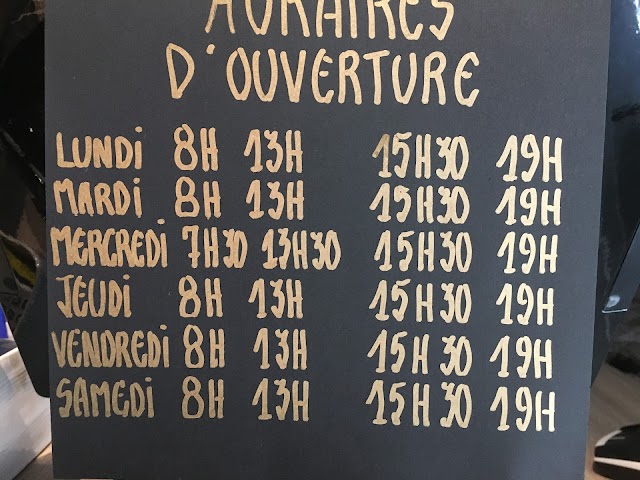 HORAIRES
D'OUVERTURE
LUNDi 8H 13H 15H30 19H
MARDi 8H 13H 15H30 19H
MERCREDi 7H30 13H30 15H30 19H
JEUDi 8H 13H 15H30 19H
VENDREDi 8H 13H 15H30 19H
SAMEDi 8H 13H 15H30 19H